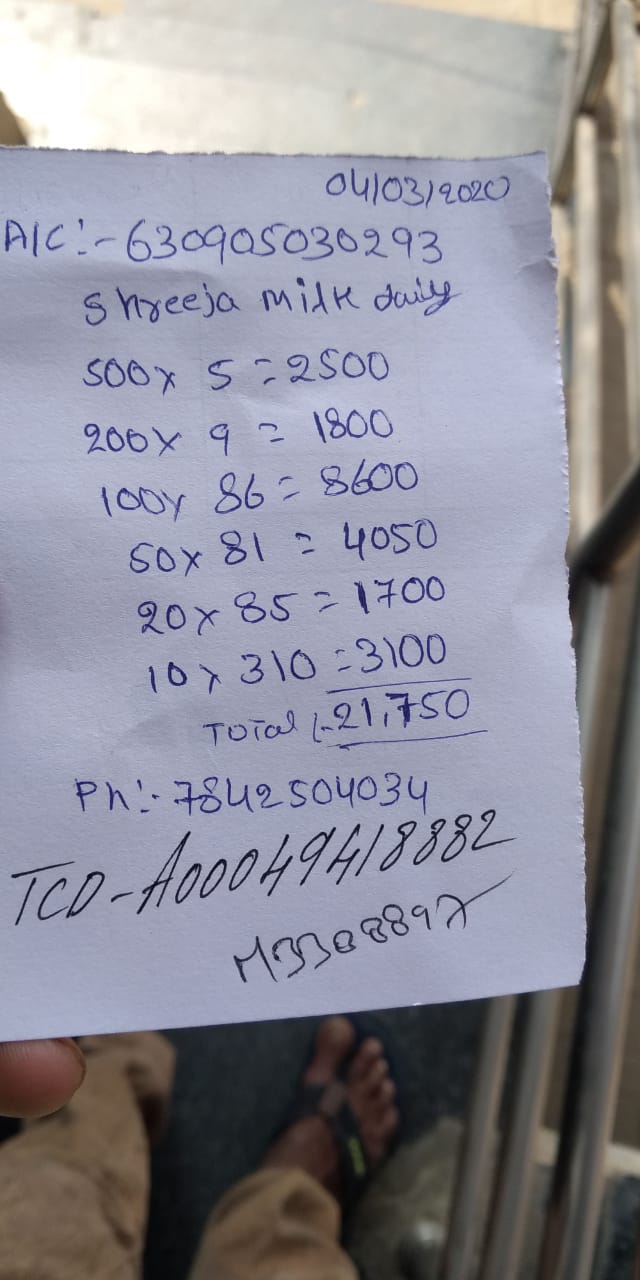 04/03/2020
A/C:-630905030293
Shreeja milk daily
500x 5=2500
200x 9=1800
100x 86=8600
50x 81=4050
20x 85=1700
10x 310=3100
Total :-21,750
Ph:-7842504034
TCD-A00049418882
M3308897